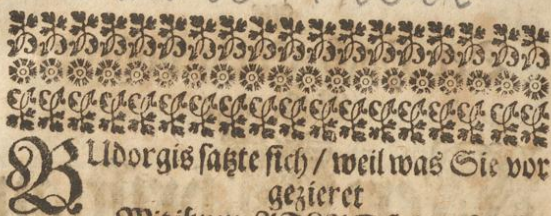 BUdorgis satzte sich / weil was Sie vor
gezieret